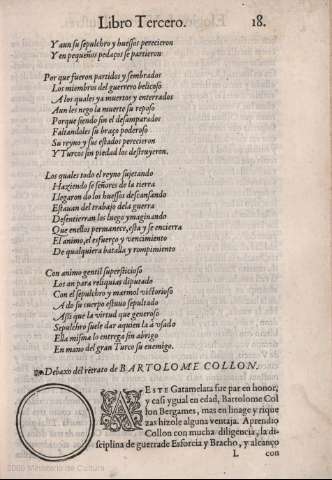 Libro Tercero. 18.
Y aun su sepulchro y huessos perecieron
Y en pequeños pedaços se partieron
Por que fueron partidos y sembrados
Los miembros del guerrero belicoso
A los quales ya muertos y enterrados
Aun les nego la muerte su reposo
Porque siendo sin el desamparados
Faltandoles su braço poderoso
Su reyno y sus estados perecieron
Y Turcos sin piedad los destruyeron.
Los quales todo el reyno sujetando
Haziendo se señores de la tierra
Llegaron do los huessos descansando
Estauan del trabajo dela guerra
Desentierran los luego ymaginando
Que enellos permanece, esta y se encierra
El animo, el esfuerço y vencimiento
De qualquiera batalla y rompimiento
Con animo gentil supersticioso
Los an para reliquias diputado
Con el sepulchro y marmol victorioso
A do su cuerpo estuuo sepultado
Assi que la virtud que generoso
Sepulchro suele dar aquien la à usado
Ella misma lo entrego sin abrigo
En mano del gran Turco su enemigo.
Debaxo del retrato de BARTOLOME COLLON.
A ESTE Gatamelata fue par en honor,
y casi ygual en edad, Bartolome Col
lon Bergames, mas en linage y rique
zas hizole alguna ventaja. Aprendio
Collon con mucha diligencia, la di
sciplina de guerra de Esforcia y Bracho, y alcanço
L con
2009 Ministerio de Cultura